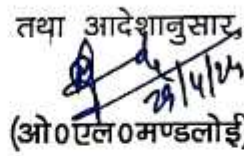 तथा आदेशानुसार,
29/4/24
(ओ0एल0मण्डलोई)